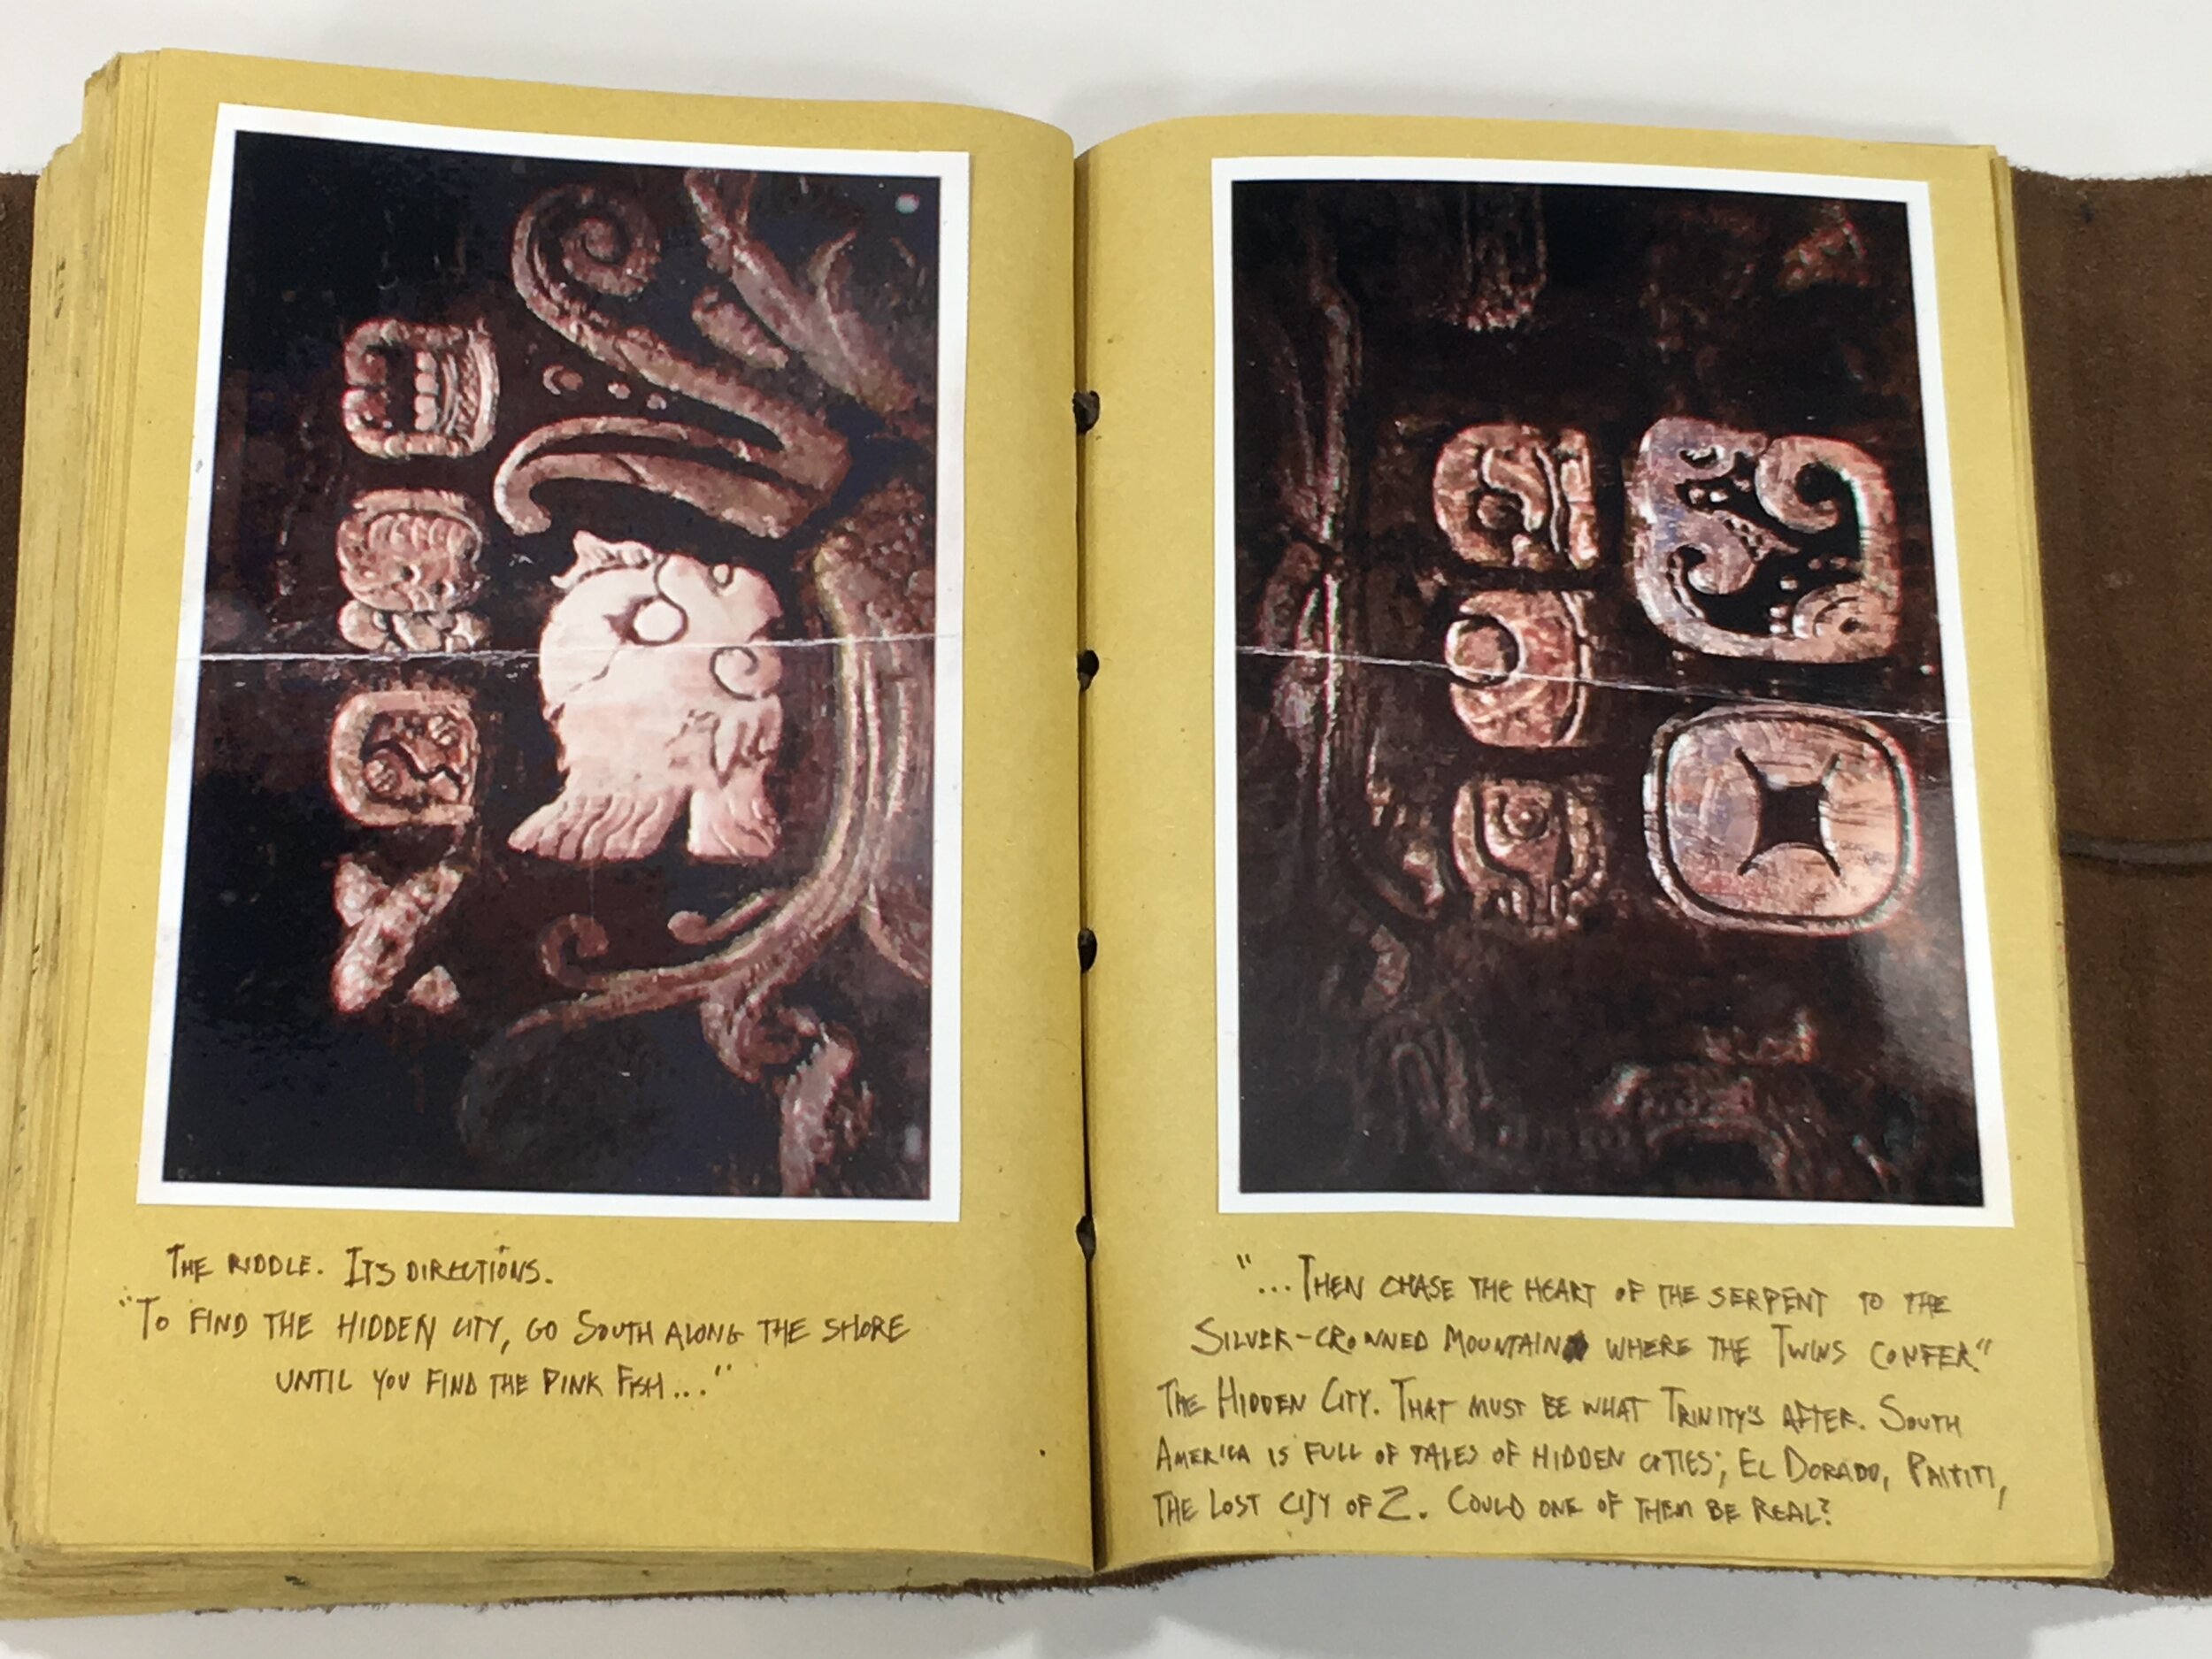 THE RIDDLE. ITS DIRECTIONS.
"TO FIND THE HIDDEN CITY, GO SOUTH ALONG THE SHORE
UNTIL YOU FIND THE PINK FISH..."
"...THEN CHASE THE HEART OF THE SERPENT TO THE
SILVER-CROWNED MOUNTAIN WHERE THE TWINS CONFER."
THE HIDDEN CITY. THAT MUST BE WHAT TRINITY'S AFTER. SOUTH
AMERICA IS FULL OF TALES OF HIDDEN CITIES; EL DORADO, PAITITI,
THE LOST CITY OF Z. COULD ONE OF THEM BE REAL?